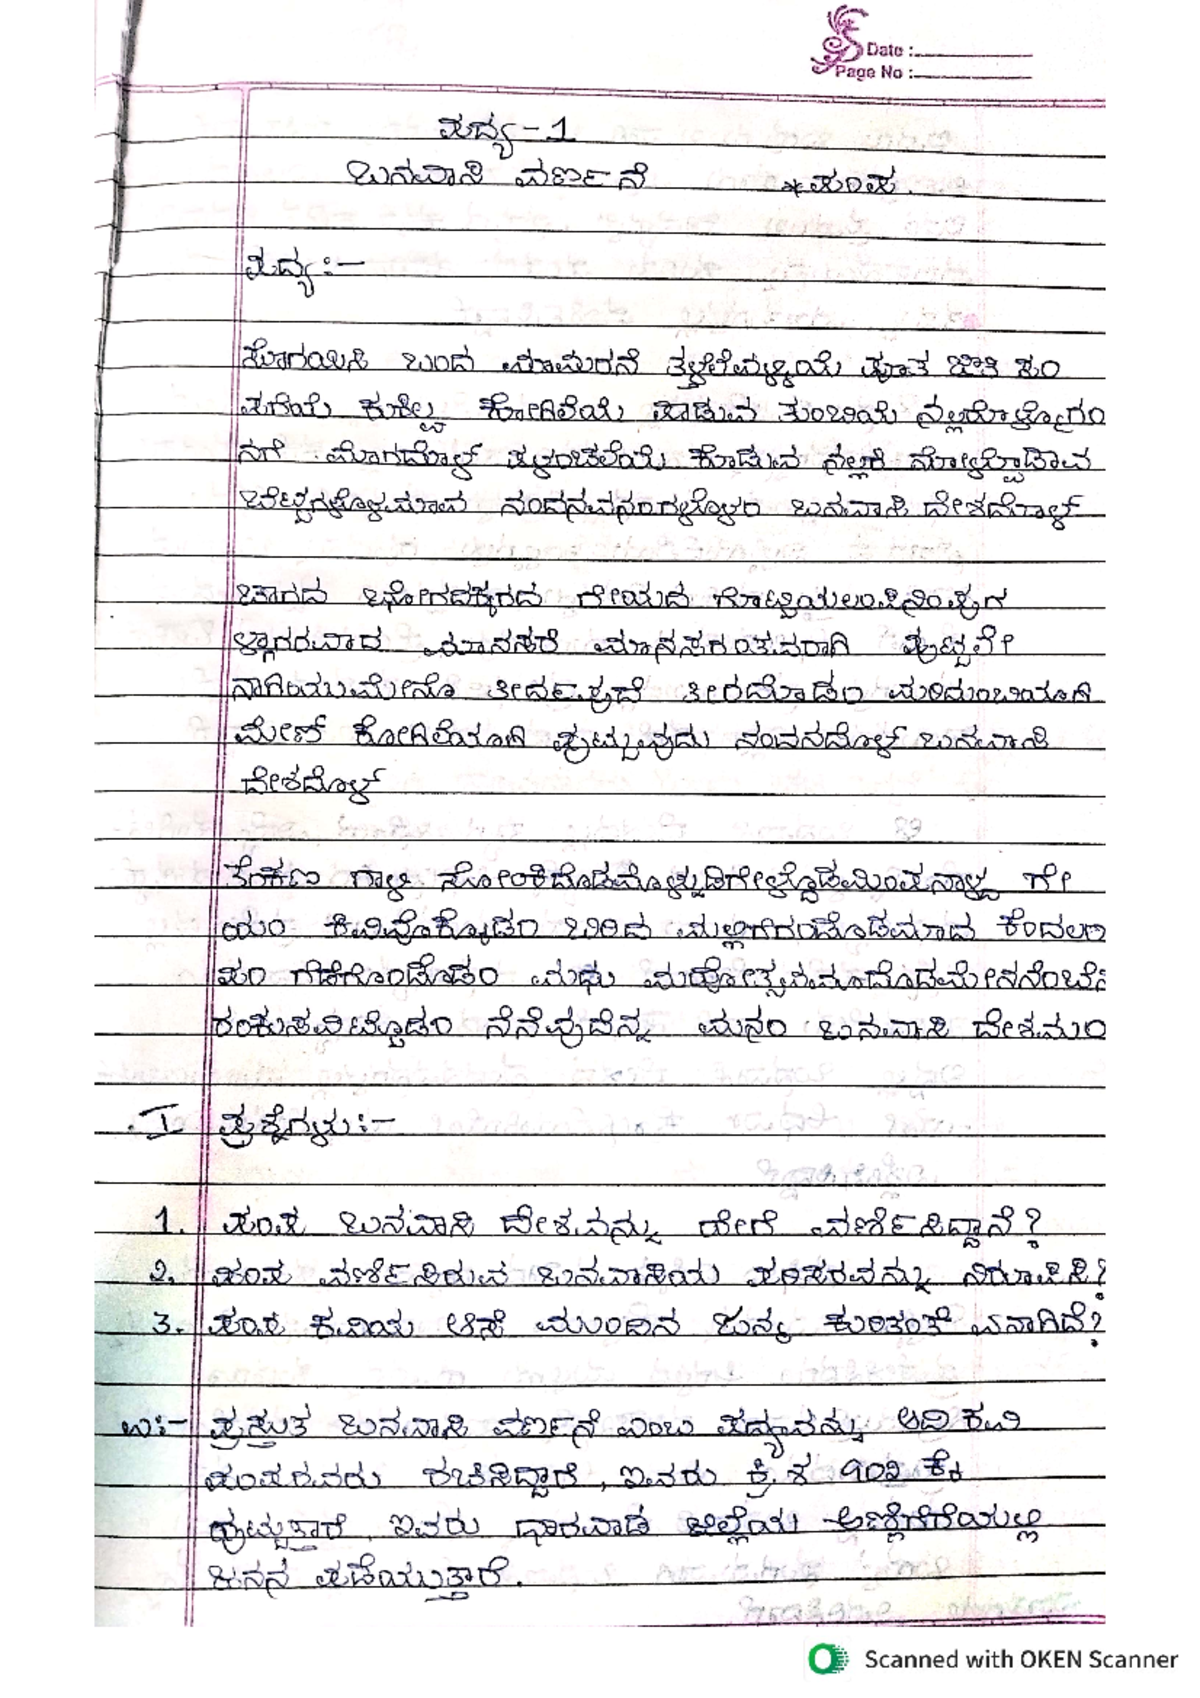 Date :
Page No :
ಪದ್ಯ - 1
ಬನವಾಸಿ ವರ್ಣನೆ * ಪಂಪ.
ಪದ್ಯ :-
ಸೊಗಯಿಸಿ ಬಂದ ಮಾಮರನೆ ತಳ್ತೆಲೆವಳ್ಳಿಯೆ ಪೂತ ಜಾತಿ ಸಂ
ಪಗೆಯೆ ಕುಕಿಲ್ವ ಕೋಗಿಲೆಯೆ ಪಾಡುವ ತುಂಬಿಯೆ ನಲ್ಲರೊಳ್ಮೊಗಂ
ನಗೆ ಮೊಗದೊಳ್ ಪಳಂಚಲೆಯೆ ಕೂಡುವ ನಲ್ಲರೆ ನೋಳ್ಪೊಡಾವ
ಬೆಟ್ಟಗಳೊಳಮಾವ ನಂದನವನಂಗಳೊಳಂ ಬನವಾಸಿ ದೇಶದೊಳ್
ಚಾಗದ ಭೋಗದಕ್ಕರದ ಗೇಯದ ಗೊಟ್ಟಿಯಲಂಪಿನಿಂಪುಗ
ಳ್ಗಾಗರವಾದ ಮಾನಸರೆ ಮಾನಸರಂತವರಾಗಿ ಪುಟ್ಟಲೇ
ನಾಗಿಯುಮೇನೊ ತೀರ್ದಪುದೆ ತೀರದೊಡಂ ಮರಿದುಂಬಿಯಾಗಿ
ಮೇಣ್ ಕೋಗಿಲೆಯಾಗಿ ಪುಟ್ಟುವುದು ನಂದನದೊಳ್ ಬನವಾಸಿ
ದೇಶದೊಳ್
ತೆಂಕಣ ಗಾಳಿ ಸೋಂಕಿದೊಡಮೊಳ್ನುಡಿಗೇಳ್ದೊಡಮಿಂಪನಾಳ್ದ ಗೇ
ಯಂ ಕಿವಿವೊಕ್ಕೊಡಂ ಬಿರಿದ ಮಲ್ಲಿಗೆಗಂಡೊಡಮಾದ ಕೆಂದಲಂ
ಪಂ ಗೆಡೆಗೊಂಡೊಡಂ ಮಧು ಮಹೋತ್ಸವಮಾದೊಡಮೇನನೆಂಬೆನಾ
ರಂಕುಸವಿಟ್ಟೊಡಂ ನೆನೆವುದೆನ್ನ ಮನಂ ಬನವಾಸಿ ದೇಶಮಂ
I ಪ್ರಶ್ನೆಗಳು :-
1. ಪಂಪ ಬನವಾಸಿ ದೇಶವನ್ನು ಹೇಗೆ ವರ್ಣಿಸಿದ್ದಾನೆ?
2. ಪಂಪ ವರ್ಣಿಸಿರುವ ಬನವಾಸಿಯ ಪರಿಸರವನ್ನು ನಿರೂಪಿಸಿ?
3. ಪಂಪ ಕವಿಯ ಆಸೆ ಮುಂದಿನ ಜನ್ಮ ಕುರಿತಂತೆ ಏನಾಗಿದೆ?
ಉ:- ಪ್ರಸ್ತುತ ಬನವಾಸಿ ವರ್ಣನೆ ಎಂಬ ಪದ್ಯಾವನ್ನು ಆದಿ ಕವಿ
ಪಂಪರವರು ರಚಿಸಿದ್ದಾರೆ, ಇವರು ಕ್ರಿ.ಶ ೯೦೨ ಕ್ಕೆ
ಹುಟ್ಟುತ್ತಾರೆ, ಇವರು ಧಾರವಾಡ ಜಿಲ್ಲೆಯ ಅಣ್ಣಿಗೆರೆಯಲ್ಲಿ
ಜನನ ಪಡೆಯುತ್ತಾರೆ.
Scanned with OKEN Scanner